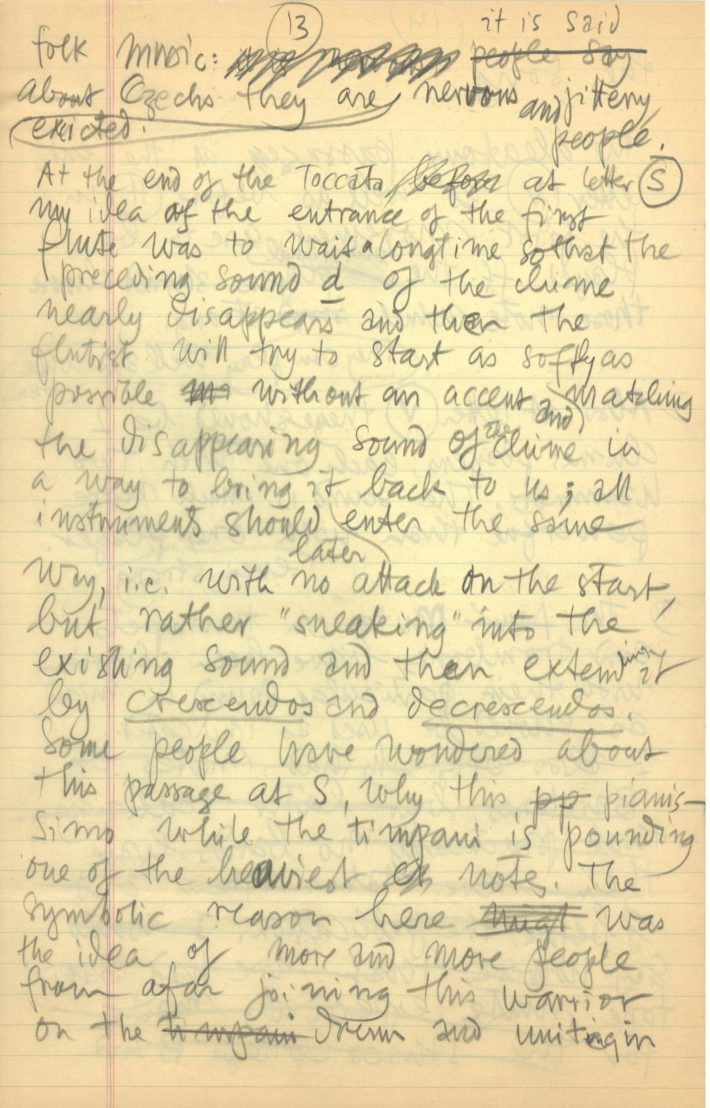 13
it is said
folk music: people say
about Czechs they are nervous and jittery,
exicted. people.
At the end of the Toccata before at letter S
my idea of the entrance of the first
flute was to wait a long time so that the
preceding sound d of the chime
nearly disappears and then the
flutist will try to start as softly as
possible without an accent and matching
the disappearing sound of the chime in
a way to bring it back to us; all
instruments should enter the same
later
way, i.e. with no attack on the start,
but rather "sneaking" into the
existing sound and then extending it
by crescendos and decrescendos.
Some people have wondered about
this passage at S, why this pp pianis-
simo while the timpani is pounding
one of the heaviest notes. The
symbolic reason here might was
the idea of more and more people
from afar joining this warrior
on the timpani drum and uniting in